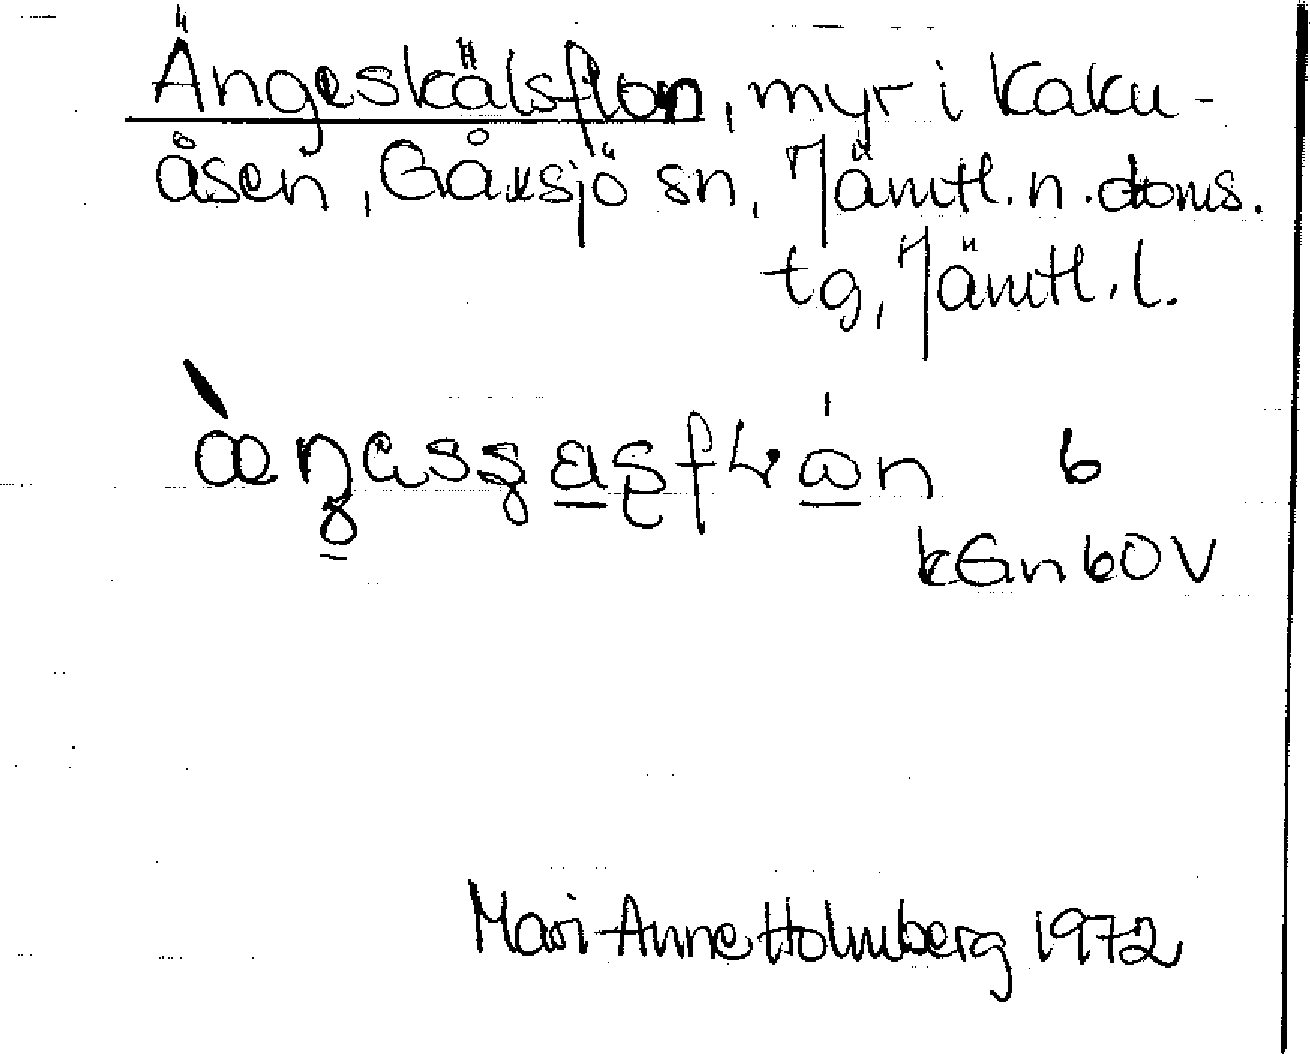 Ängeskälsflon, myr i Kaku-
åsen, Gåxsjö sn, Jämtl. n. doms.
tg, Jämtl. l.
b
k Gn b O V
Mari-Anne Holmberg 1972